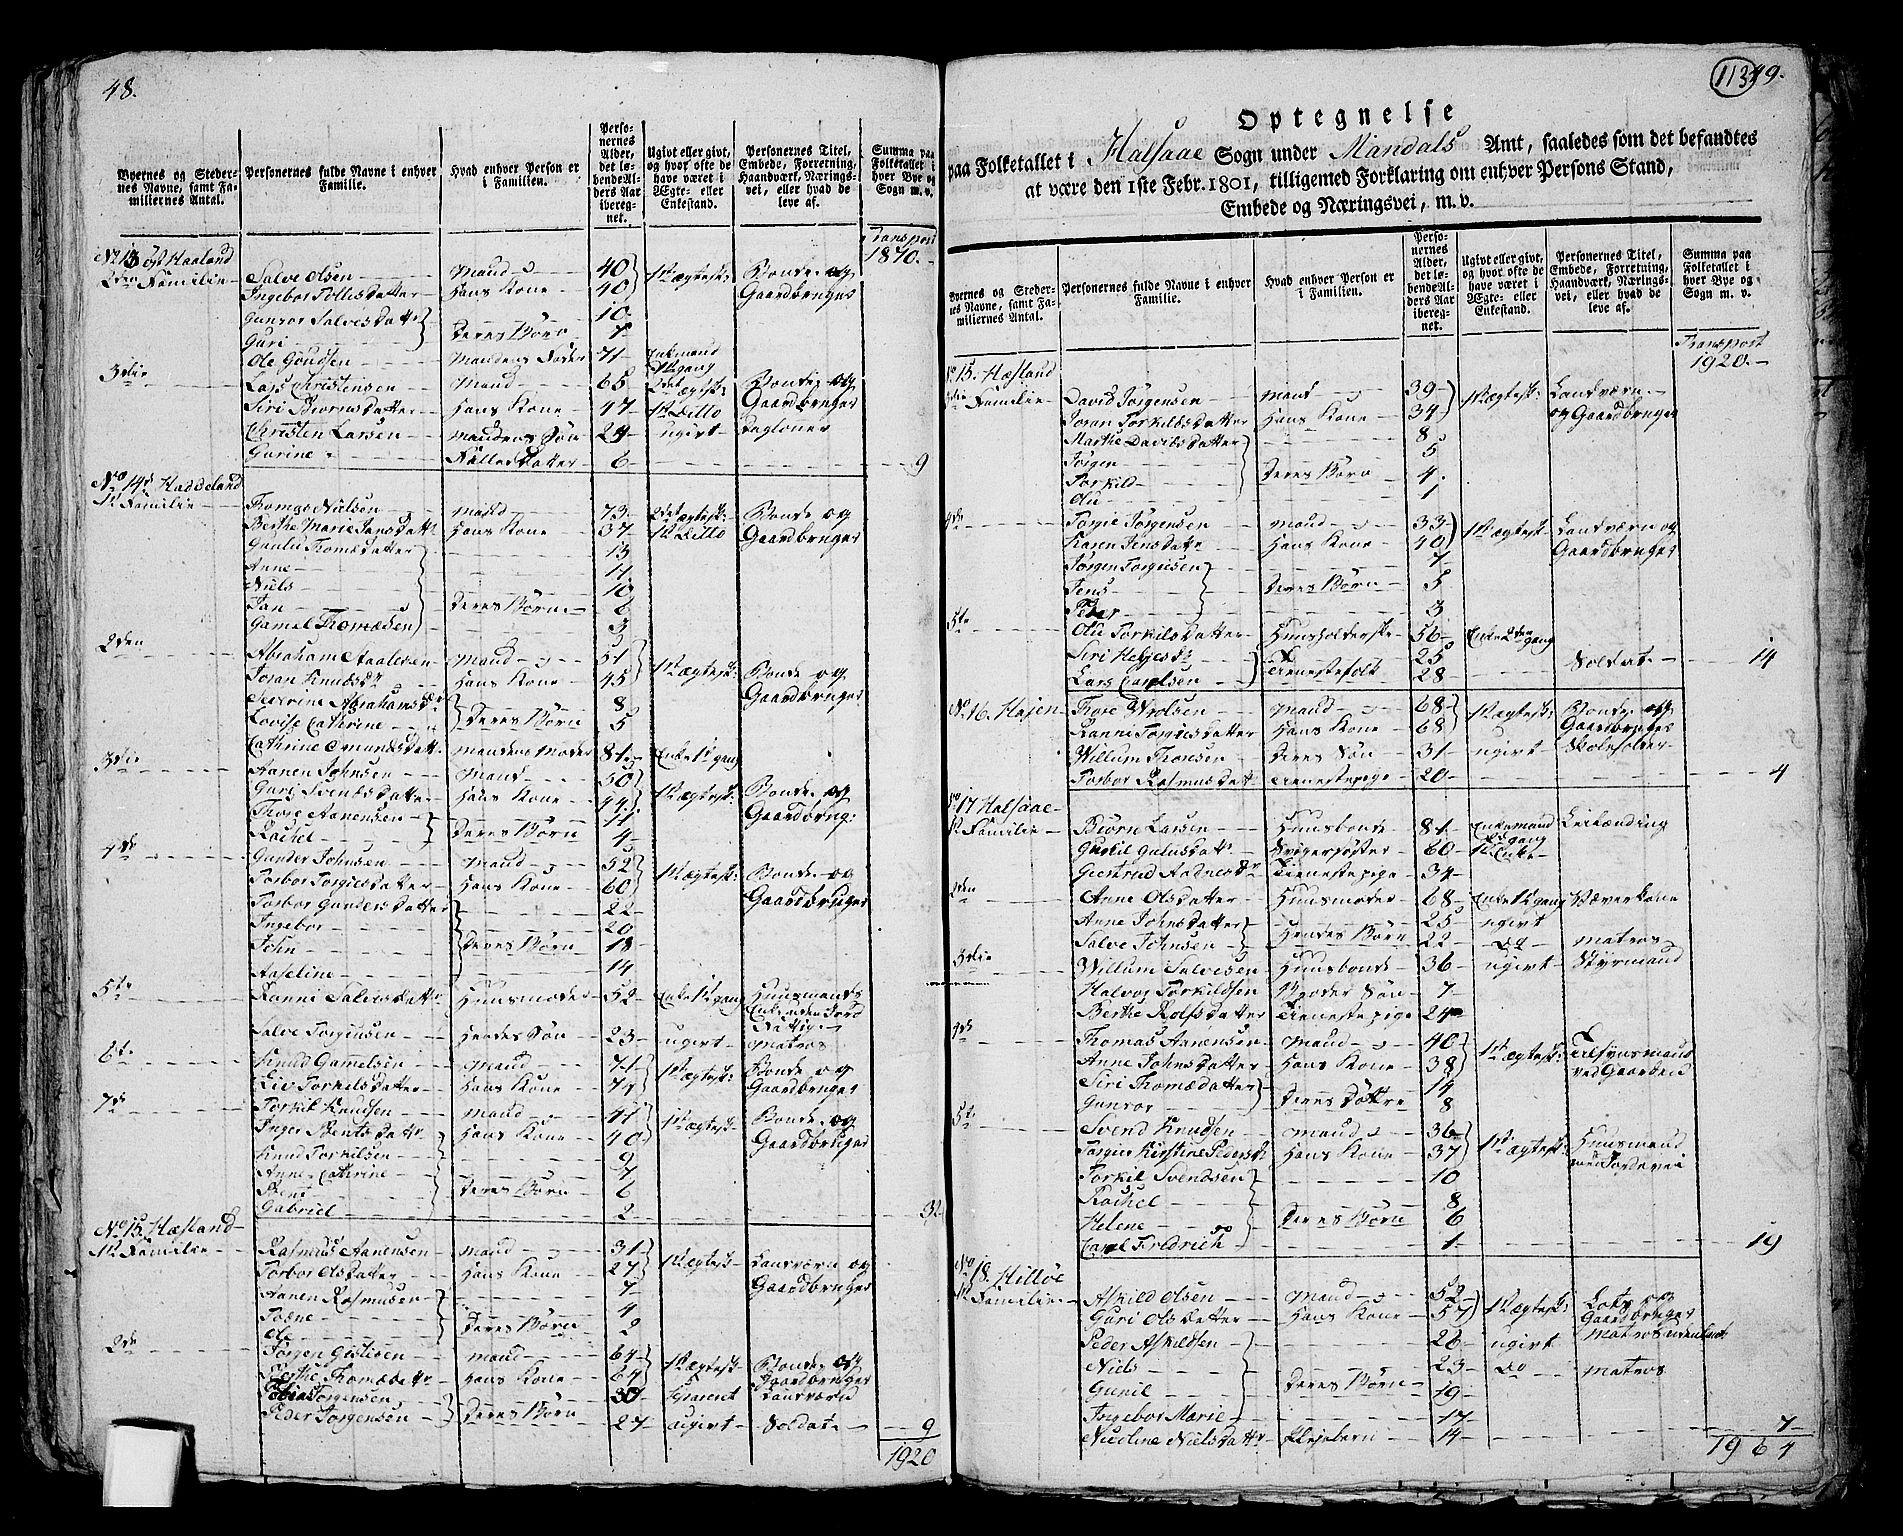 48.
Byernes og Stedernes Navne, samt Familiernes Antal. | Personernes fulde Navne i enhver Familie. | Hvad enhver Person er i Familien. | Personernes Alder, det løbende Alders Aar iberegnet. | Ugivt eller givt, og hvor ofte de have været i Ægte- eller Enkestand. | Personernes Titel, Embede, Forretning, Haandværk, Næringsvei, eller hvad de leve af. | Summa paa Folketallet i hver Bye og Sogn m. v.
Transport 1870.
No. 13 øst Haaland
2den Familie Salve Olsen Mand 40 1st ægtesk: Bonde og
Ingebor Tollesdatter Hans Kone 40 Gaardbruger
Gunvor Salvesdatt 10
Guri Deres Børn 7
Ole Goudsen Mandens Fader 71 Enkemand 1st gang
3die Lars Christensen Mand 65 2det ægtesk: Bonde og
Siri Biørnsdatter Hans Kone 47 1st Ditto Gaardbruger
Christen Larsen Mandens Søn 24 ugivt Dagloner
Gurine Fælles Datter 6 9
No. 14 Haddeland
1st Familie Thomas Nielsen Mand 73 2det ægtesk: Bonde og
Berthe Marie Jansdatt Hans Kone 37 1st Ditto Gaardbruger
Thomædatter 13
Anne 11
Niels 10
Jan Deres Børn 6
Gamel Thomæsen 3
2den Abraham Aaalesen Mand 51 1st ægtesk: Bonde og
Joran Knudsd Hans Kone 45 Gaardbruger
Severine Abrahamsdr 8
Lovise Cathrine Deres Børn 5
Cathrine Omundsdatt Mandens Moder 81 Enke 1st gang
3die Aanen Johnsen Mand 50 1st ægtesk: Bonde og
Guri Svendsdatter Hans Kone 44 Gaardbrug:
Thore Aanensen 11
Rachel Deres Børn 4
4de Gunder Johnsen Mand 52 1st ægtesk: Bonde og
Torbor Torgiesdatter Hans Kone 60 Gaardbruger
Torbor Gundersdatter 22
Ingebor 20
John Deres Børn 18
Aaseline 14
5te Ranni Salvesdatt Huusmoder 52 Enke 1st gang Huusmands Enke uden Jord fattig
Salve Torgiusen Hendes Søn 23 ugivt Matros
6te Knud Gamelsen Mand 71 1st ægtesk: Bonde og
Liv Torkelsdatter Hans Kone 74 Gaardbruger
7de Torkil Knudsen Mand 41 1st ægtesk: Bonde og
Inger Bentsdatt Hans Kone 40 Gaardbruger
Knud Torkilsen 9
Anne Cathrine 7
Bent Deres Børn 6
Gabriel 2 32
No. 15. Hæsland
1st Familie Rasmus Aanensen Mand 31 1st ægtesk: Landværn og
Torbor Olsdatter Hans Kone 27 Gaardbruger
Aanen Rasmusen 7
Tobine 4
Ole Deres Børn 2
2de Jørgen Mand 64 1st ægtesk: Bonde og
Berthe Thomædatt Hans Kone 64 Gaardbruger
Tobias Jørgensen 30 Landværn
Peder Jørgensen Deres Børn 27 ugivt Soldat 9
1920
113 49.
Optegnelse
paa Folketallet i Halsaae Sogn under Mandals Amt, saaledes som det befandtes
at være den 1ste Febr. 1801, tilligemed Forklaring om enhver Persons Stand,
Embede og Næringsvei, m. v.
Byernes og Stedernes Navne, samt Familiernes Antal. | Personernes fulde Navne i enhver Familie. | Hvad enhver Person er i Familien. | Personernes Alder, det løbende Alders Aar iberegnet. | Ugivt eller givt, og hvor ofte de have været i Ægte- eller Enkestand. | Personernes Titel, Embede, Forretning, Haandværk, Næringsvei, eller hvad de leve af. | Summa paa Folketallet i hver Bye og Sogn m. v.
Transport 1920.
No. 15. Hæsland
3die Familie David Jørgensen Mand 39 1st ægtesk: Landværn
Joran Torkildsdatter Hans Kone 34 og Gaardbruger
Marthe Davidsdatter 8
Jørgen 5
Torkild Deres Børn 4
Oli 1
4de Torgie Jørgensen Mand 33 1st ægtesk: Landværn og
Karen Jensdatter Hans Kone 40 Gaardbruger
Jørgen Torgiusen 7
Jens Deres Børn 5
Peder 3
5te Oli Torkilsdatter Huusholderske 56 Enke 2den gang
Siri Heljesdr 25
Lars Carlsen Tienestefolk 28 Soldat 14
No. 16. Hajen Thore Wrolsen Mand 68 1st ægtesk: Bonde og
Ranni Torgiesdatter Hans Kone 68 Gaardbruger
Willum Thorsen Deres Søn 31 ugivt Skoleholder
Torbor Rasmusdatt Tienestepige 20 4
No 17 Halsaae
1st Familie Biørn Larsen Huusbonde 81 Enkemand gang Leilænding
Gunild Gulusdatt Svigersøster 60 1st Enke
Giertrud Aadnesdr Tienestepige 34
2den Anne Olsdatter Huusmoder 68 Enke 1st gang Væverkone
Anne Johnsdatter 25 ugivt
Salve Johnsen Hendes Børn 22 do Matros
3die Willum Salvesen Huusbonde 36 ugivt Styrmand
Halvor Torkildsen Broder Søn 7
Berthe Rolfsdatter Tienestepige 24
4de Thomas Aanensen Mand 40 1st ægtesk: Tilsynsmand
Anne Johnsdatter Hans Kone 38 ved Gaarden
Siri Thomædatter 14
Gunvor Deres Døttre 8
5te Svend Knudsen Mand 36 1st ægtesk: Huusmand
Kirstine Pedersdr Hans Kone 37 med Jordevei
Torkil Svendsen 10
Rachel 8
Helene Deres Børn 6
Carel Fredrich 1 19
No 18. Hilløe
1st Familie Askild Olsen Mand 52 1st ægtesk: Lots og
Guri Olsdatter Hans Kone 57 Gaardbruger
Peder Askildsen 26 ugivt Matros
Niels 23 do Matros
Gunil Deres Børn 19
Ingebor Marie 17
Nicoline Nielsdatt Plejebarn 14 7
1964